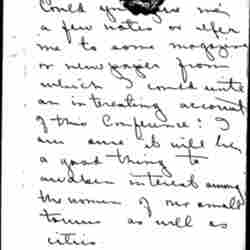 Could you give me
a few notes or refer
me to some magazine
or newspaper from
which I could write
an intreating account
of this Conference? I
am sure it will be
a good thing to
awaken interest among
the women of our small
towns as well as
cities.